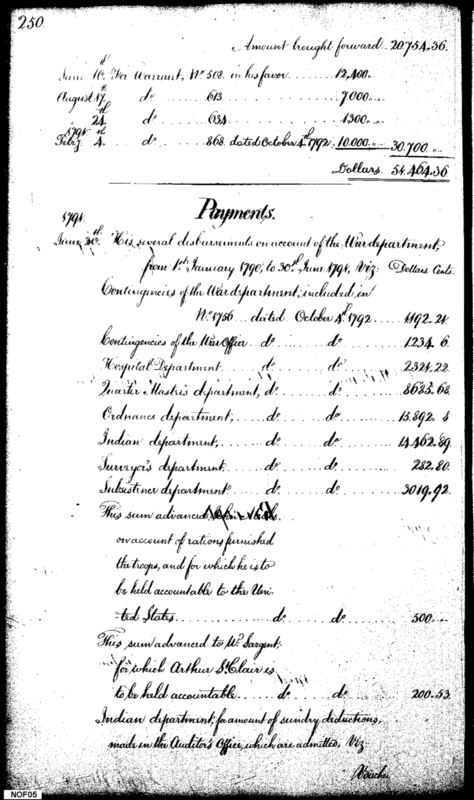 250.
Amount brought forward 20.754.36.
June 16th For Warrant, No. 508. in his favor 12,400
August 17th do 613. 7,000
24th do 634. 1300
1791. Feby 4. do 868. dated October 4th 1792 10.000 30.700
Dollars 51.464.36
Payments.
1791.
June 30th His several disbursements on account of the War department,
from 1st January 1790, to 30th June 1791. Viz. Dollars Cents.
Contingencies of the War department, included in
No. 1756 dated October 4th 1792 4192.24
Contingencies of the War Office do do 1234.6
Hospital Department do do 2324.22
Quarter Mastrs department, do do 8635.68
Ordnance department, do do 15.892.8
Indian department, do do 14.462.89
Surveyor's department do do 282.80
Subsistence department do do 3019.92
This sum advanced
on account of rations furnished
the troops, and for which he is to
be held accountable to the Uni-
-ted States do do 500
This sum advanced to Mr. Sargent,
for which Arthur St. Clair is
to be held accountable do do 200.53
Indian department, for amount of sundry deductions,
made in the Auditor's Office, which are admitted, Viz
NOF05